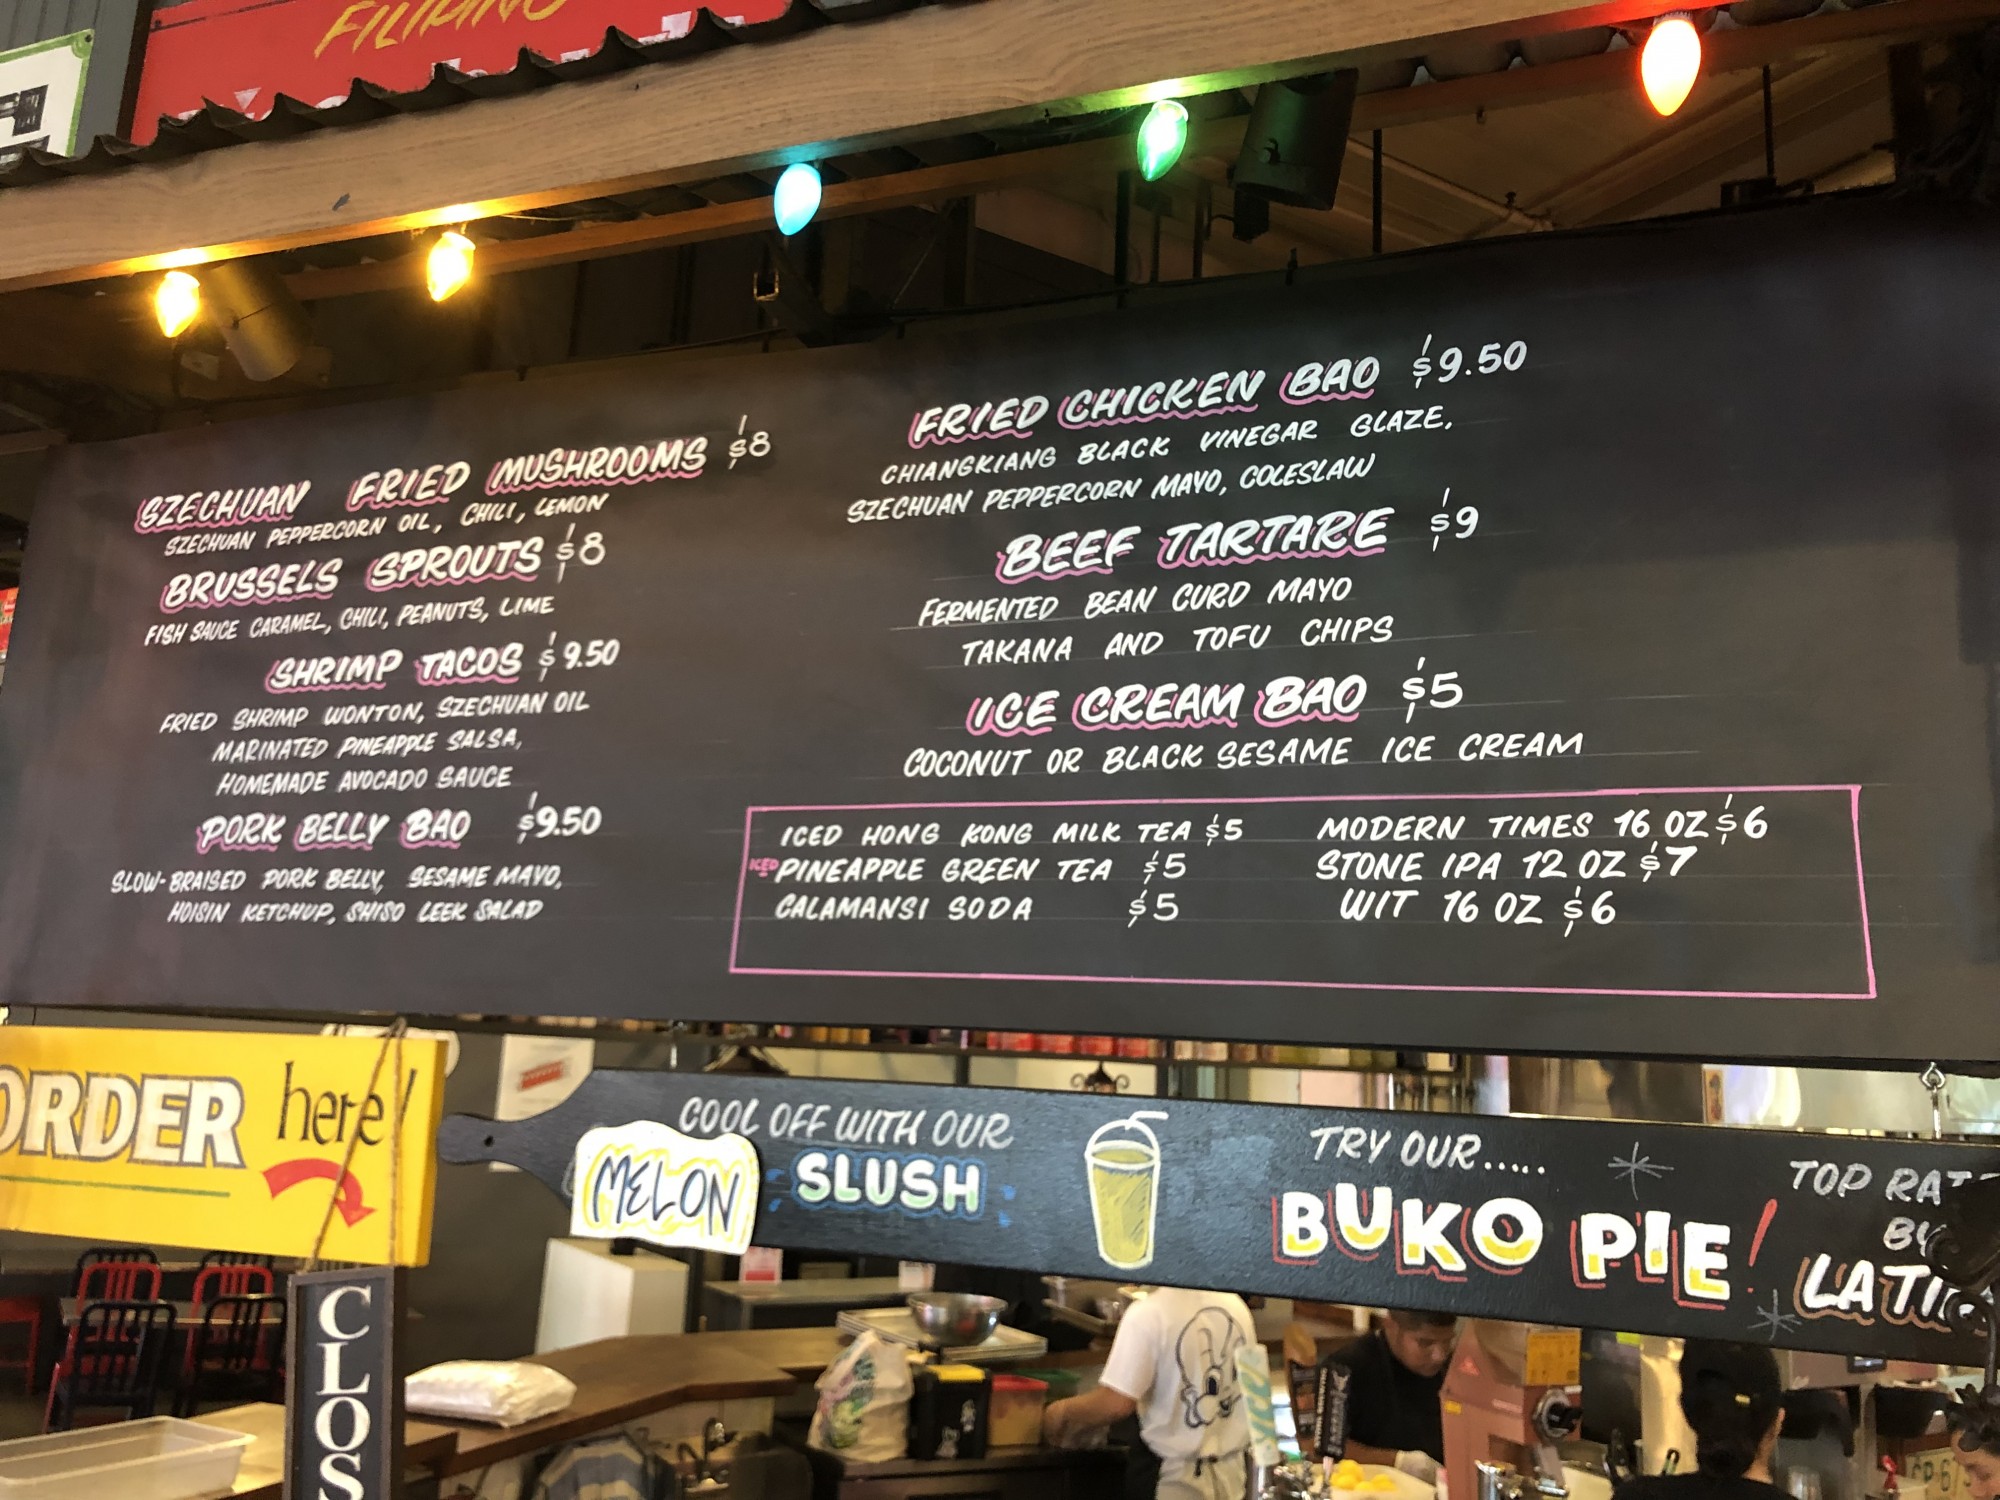 FILIPINO
SZECHUAN FRIED MUSHROOMS $8
SZECHUAN PEPPERCORN OIL, CHILI, LEMON
BRUSSELS SPROUTS $8
FISH SAUCE CARAMEL, CHILI, PEANUTS, LIME
SHRIMP TACOS $9.50
FRIED SHRIMP WONTON, SZECHUAN OIL
MARINATED PINEAPPLE SALSA,
HOMEMADE AVOCADO SAUCE
PORK BELLY BAO $9.50
SLOW-BRAISED PORK BELLY, SESAME MAYO,
HOISIN KETCHUP, SHISO LEEK SALAD
FRIED CHICKEN BAO $9.50
CHIANGKIANG BLACK VINEGAR GLAZE,
SZECHUAN PEPPERCORN MAYO, COLESLAW
BEEF TARTARE $9
FERMENTED BEAN CURD MAYO
TAKANA AND TOFU CHIPS
ICE CREAM BAO $5
COCONUT OR BLACK SESAME ICE CREAM
ICED HONG KONG MILK TEA $5
ICED PINEAPPLE GREEN TEA $5
CALAMANSI SODA $5
MODERN TIMES 16 OZ $6
STONE IPA 12 OZ $7
WIT 16 OZ $6
ORDER here!
COOL OFF WITH OUR
MELON SLUSH
TRY OUR.....
BUKO PIE!
TOP RAT
BY
LATI
CLOS